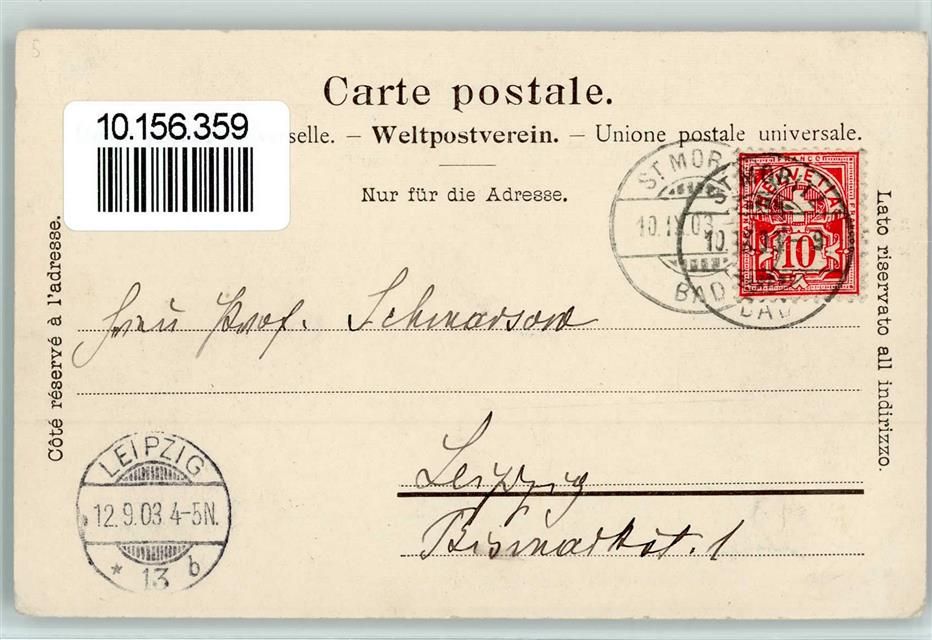 5
Carte postale.
10.156.359
selle. – Weltpostverein. – Unione postale universale.
Nur für die Adresse.
Côté réservé à l'adresse.
Lato riservato all indirizzo.
ST. MOR
10.IX.03
BAD
10.IX.03 – 9
BAD
FRANCO
HELVETIA
10
Prof. Schmarsow
Leipzig
Bismarkstr. 1
LEIPZIG
12.9.03 4-5N.
* 13 b